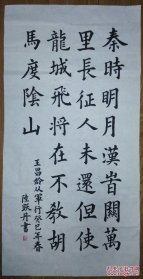 秦時明月漢旹關萬
里長征人未還但使
龍城飛将在不教胡
馬度陰山
王昌龄从軍行癸巳年春